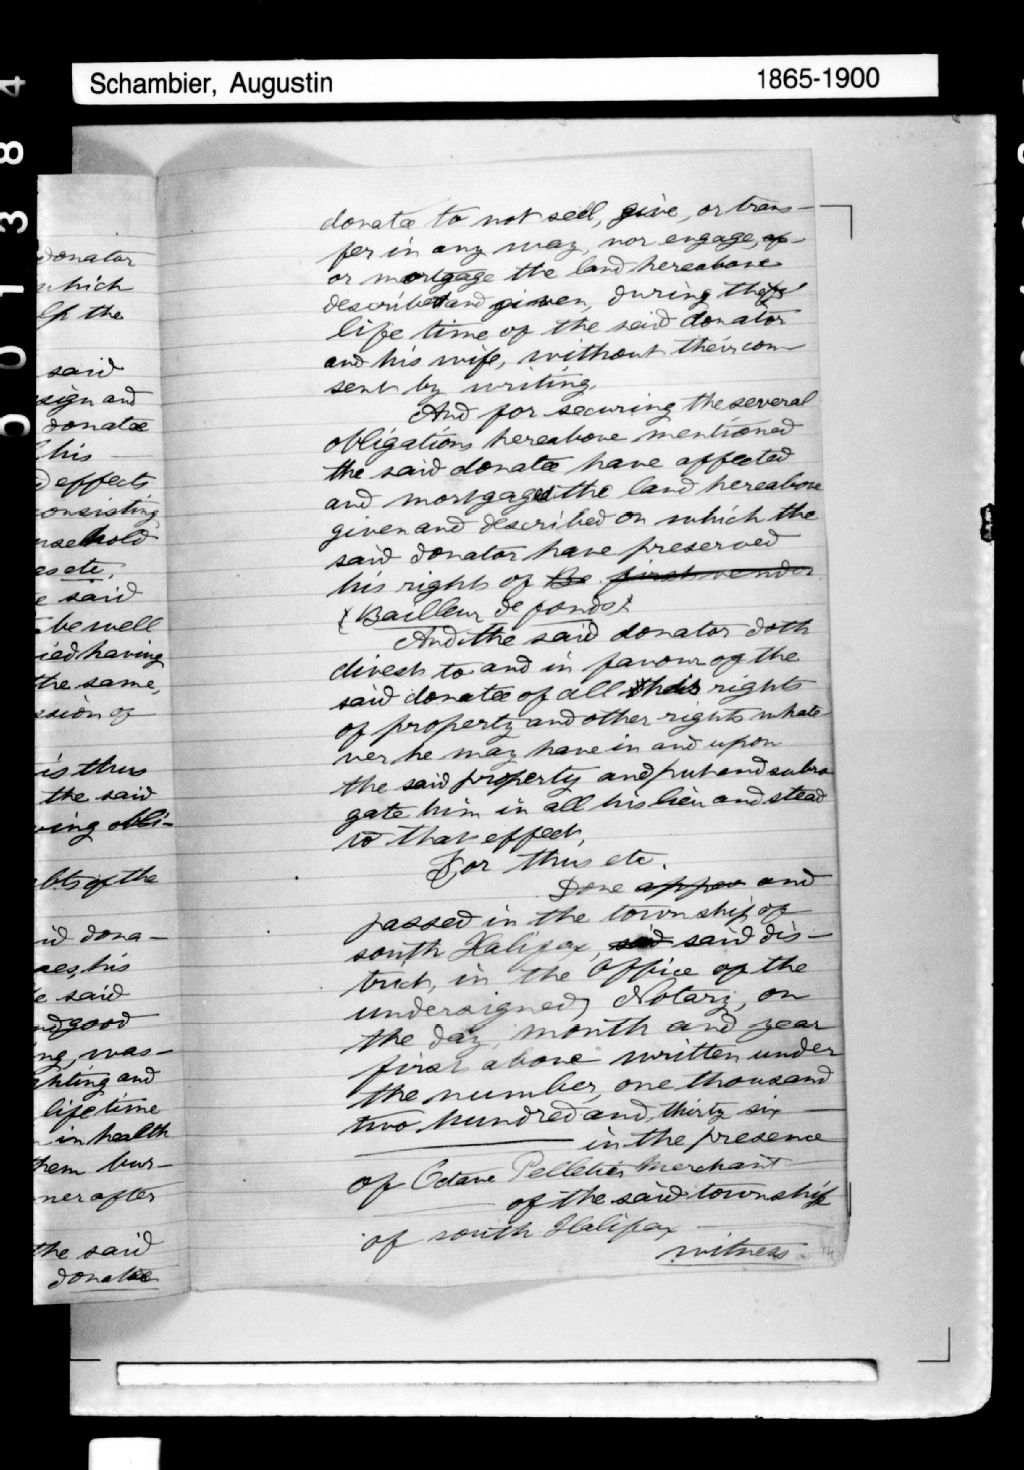 Schambier, Augustin
1865-1900
donator
which
lf the
said
sign and
donatee
his
effects
consisting
usehold
es etc,
said
be well
ied having
the same,
ssion of
is thus
the said
ving obli-
bts of the
id dona-
aes, his
e said
nd good
ng, was-
ghting and
life time
in health
them bur-
ner after
the said
donatee
donatee to not sell, give, or trans-
fer in any way, nor engage,
or mortgage the land hereabove
described and given, during the
life time of the said donator
and his wife, without their con-
sent by writing.
And for securing the several
obligations hereabove mentioned
the said donatee have affected
and mortgaged the land hereabove
given and described on which the
said donator have preserved
his rights of Be first vendor
{Bailleur de fonds}
And the said donator doth
divest to and in favour of the
said donatee of all his rights
of property and other rights whate-
ver he may have in and upon
the said property and put and subro-
gate him in all his lieu and stead
to that effect,
For thus etc.
Done appea and
passed in the township of
south Halifax, said said dis-
trict, in the office of the
undersigned Notary, on
the day, month and year
first above written under
the number, one thousand
two hundred and thirty six
in the presence
of Octave Pelletier Merchant
of the said township
of south Halifax
witness
501384